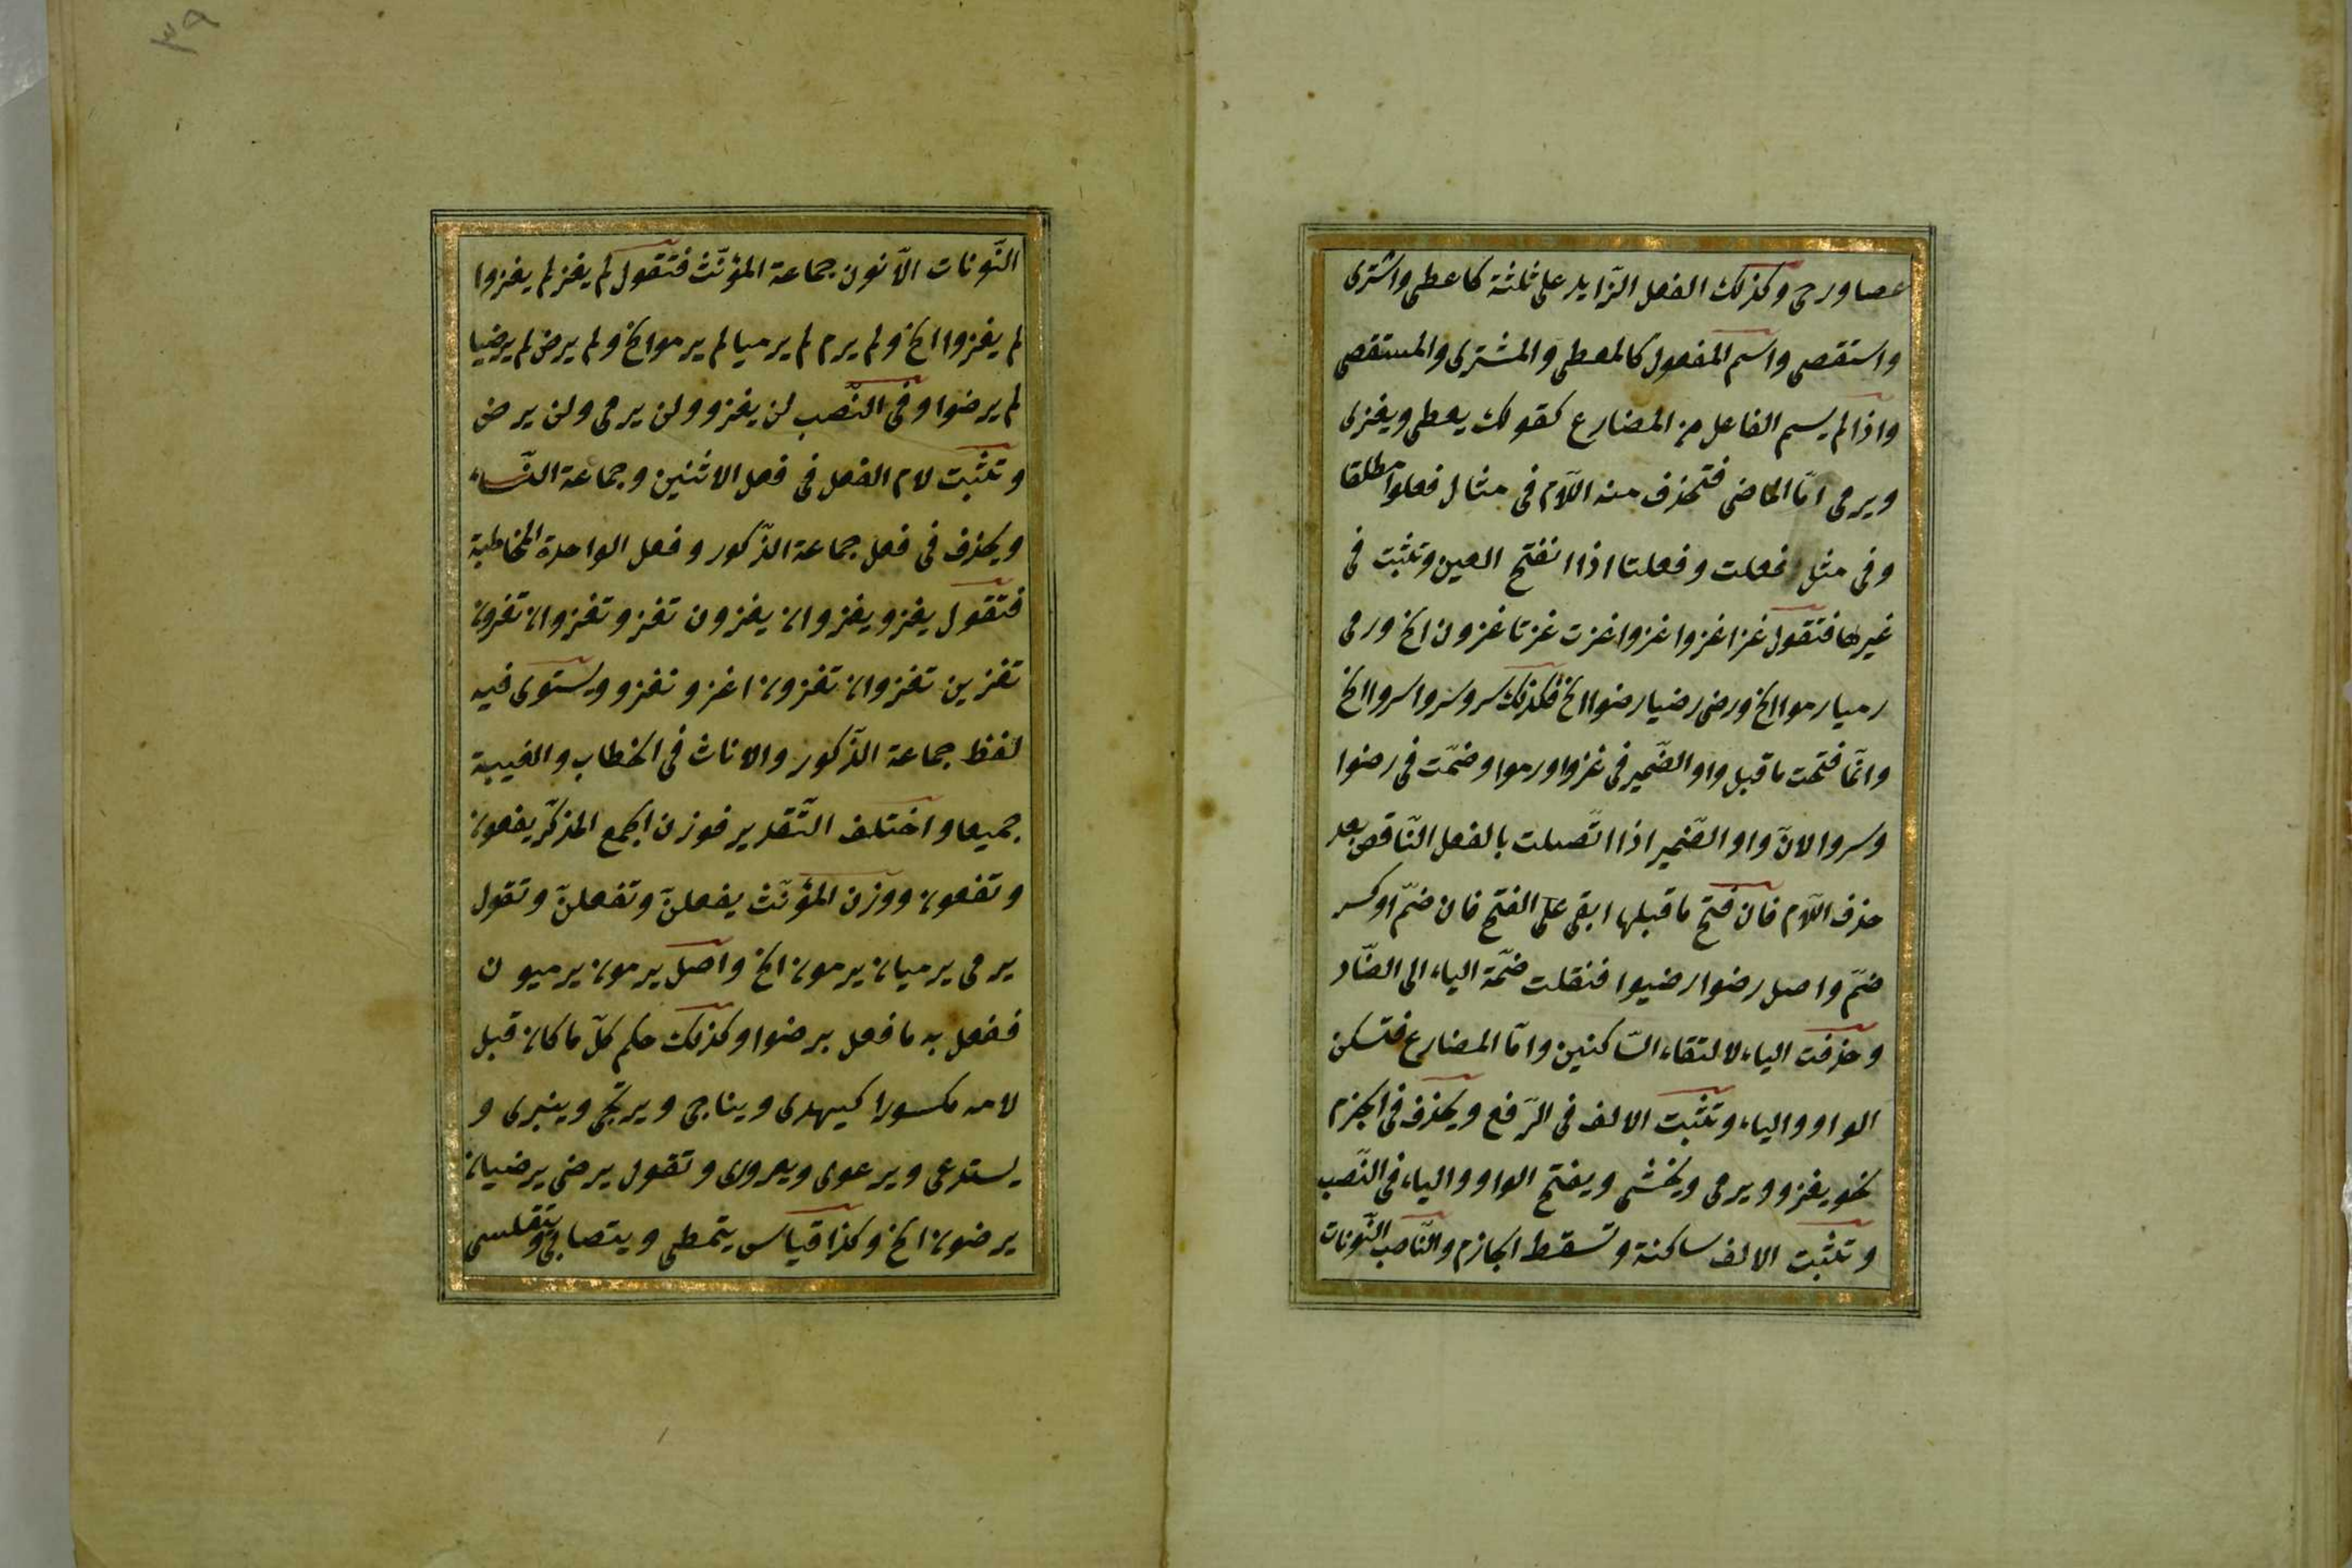 عصا ورحى وكذلك الفعل الزّايد على ثلثة كاعطى واشترى
واستقصى واسم المفعول كالمعطى والمشترى والمستقصى
واذا لم يسم الفاعل من المضارع كقولك يعطى ويغزى
ويرمى امّا الماضى فتحذف منه اللّام فى مثال فعلوا مطلقا
وفى مثل فعلت وفعلتا اذا انفتح العين وتثبت فى
غيرها فتقول غزا غزوا غزوا غزت غزتا غزون الخ ورمى
رميا رموا الخ ورضى رضيا رضوا الخ فكذلك سرو سروا سروا الخ
وانّما فتحت ما قبل واو الضّمير فى غزوا ورموا وضمّت فى رضوا
وسروا لانّ واو الضّمير اذا اتّصلت بالفعل النّاقص بعد
حذف اللّام فان فتح ما قبلها ابقى على الفتح فان ضمّ او كسر
ضمّ واصل رضوا رضيوا فنقلت ضمّة الياء الى الضّاد
وحذفت الياء لالتقاء السّاكنين وامّا المضارع فتسكن
الواو والياء وتثبت الالف فى الرّفع ويحذف فى الجزم
نحو يغزو ويرمى ويخشى ويفتح الواو والياء فى النّصب
وتثبت الالف ساكنة وتسقط الجازم والنّاصب النّونات
٣٩
النّونات الّا نون جماعة المؤنّث فتقول لم يغز لم يغزوا
لم يغزوا الخ ولم يرم لم يرميا لم يرموا الخ ولم يرض لم يرضيا
لم يرضوا وفى النّصب لن يغزو ولن يرمى ولن يرض
وتثبت لام الفعل فى فعل الاثنين وجماعة النّساء
ويحذف فى فعل جماعة الذّكور وفعل الواحدة المخاطبة
فتقول يغزو يغزوان يغزون تغزو تغزوان تغزون
تغزين تغزوان تغزون اغزو نغزو ويستوى فيه
لفظ جماعة الذّكور والاناث فى الخطاب والغيبة
جميعا واختلف التّقدير فوزن الجمع المذكّر يفعون
وتفعون ووزن المؤنّث يفعلنّ وتفعلنّ وتقول
يرمى يرميان يرمون الخ واصل يرمون يرميون
ففعل به ما فعل برضوا وكذلك حكم كلّ ما كان قبل
لامه مكسورا كيهدى ويناجى ويرتجى وينبرى و
يستدعى ويرعوى ويعرورى وتقول يرضى يرضيان
يرضون الخ وكذا قياس يتمطى ويتصابى ويتقلسى